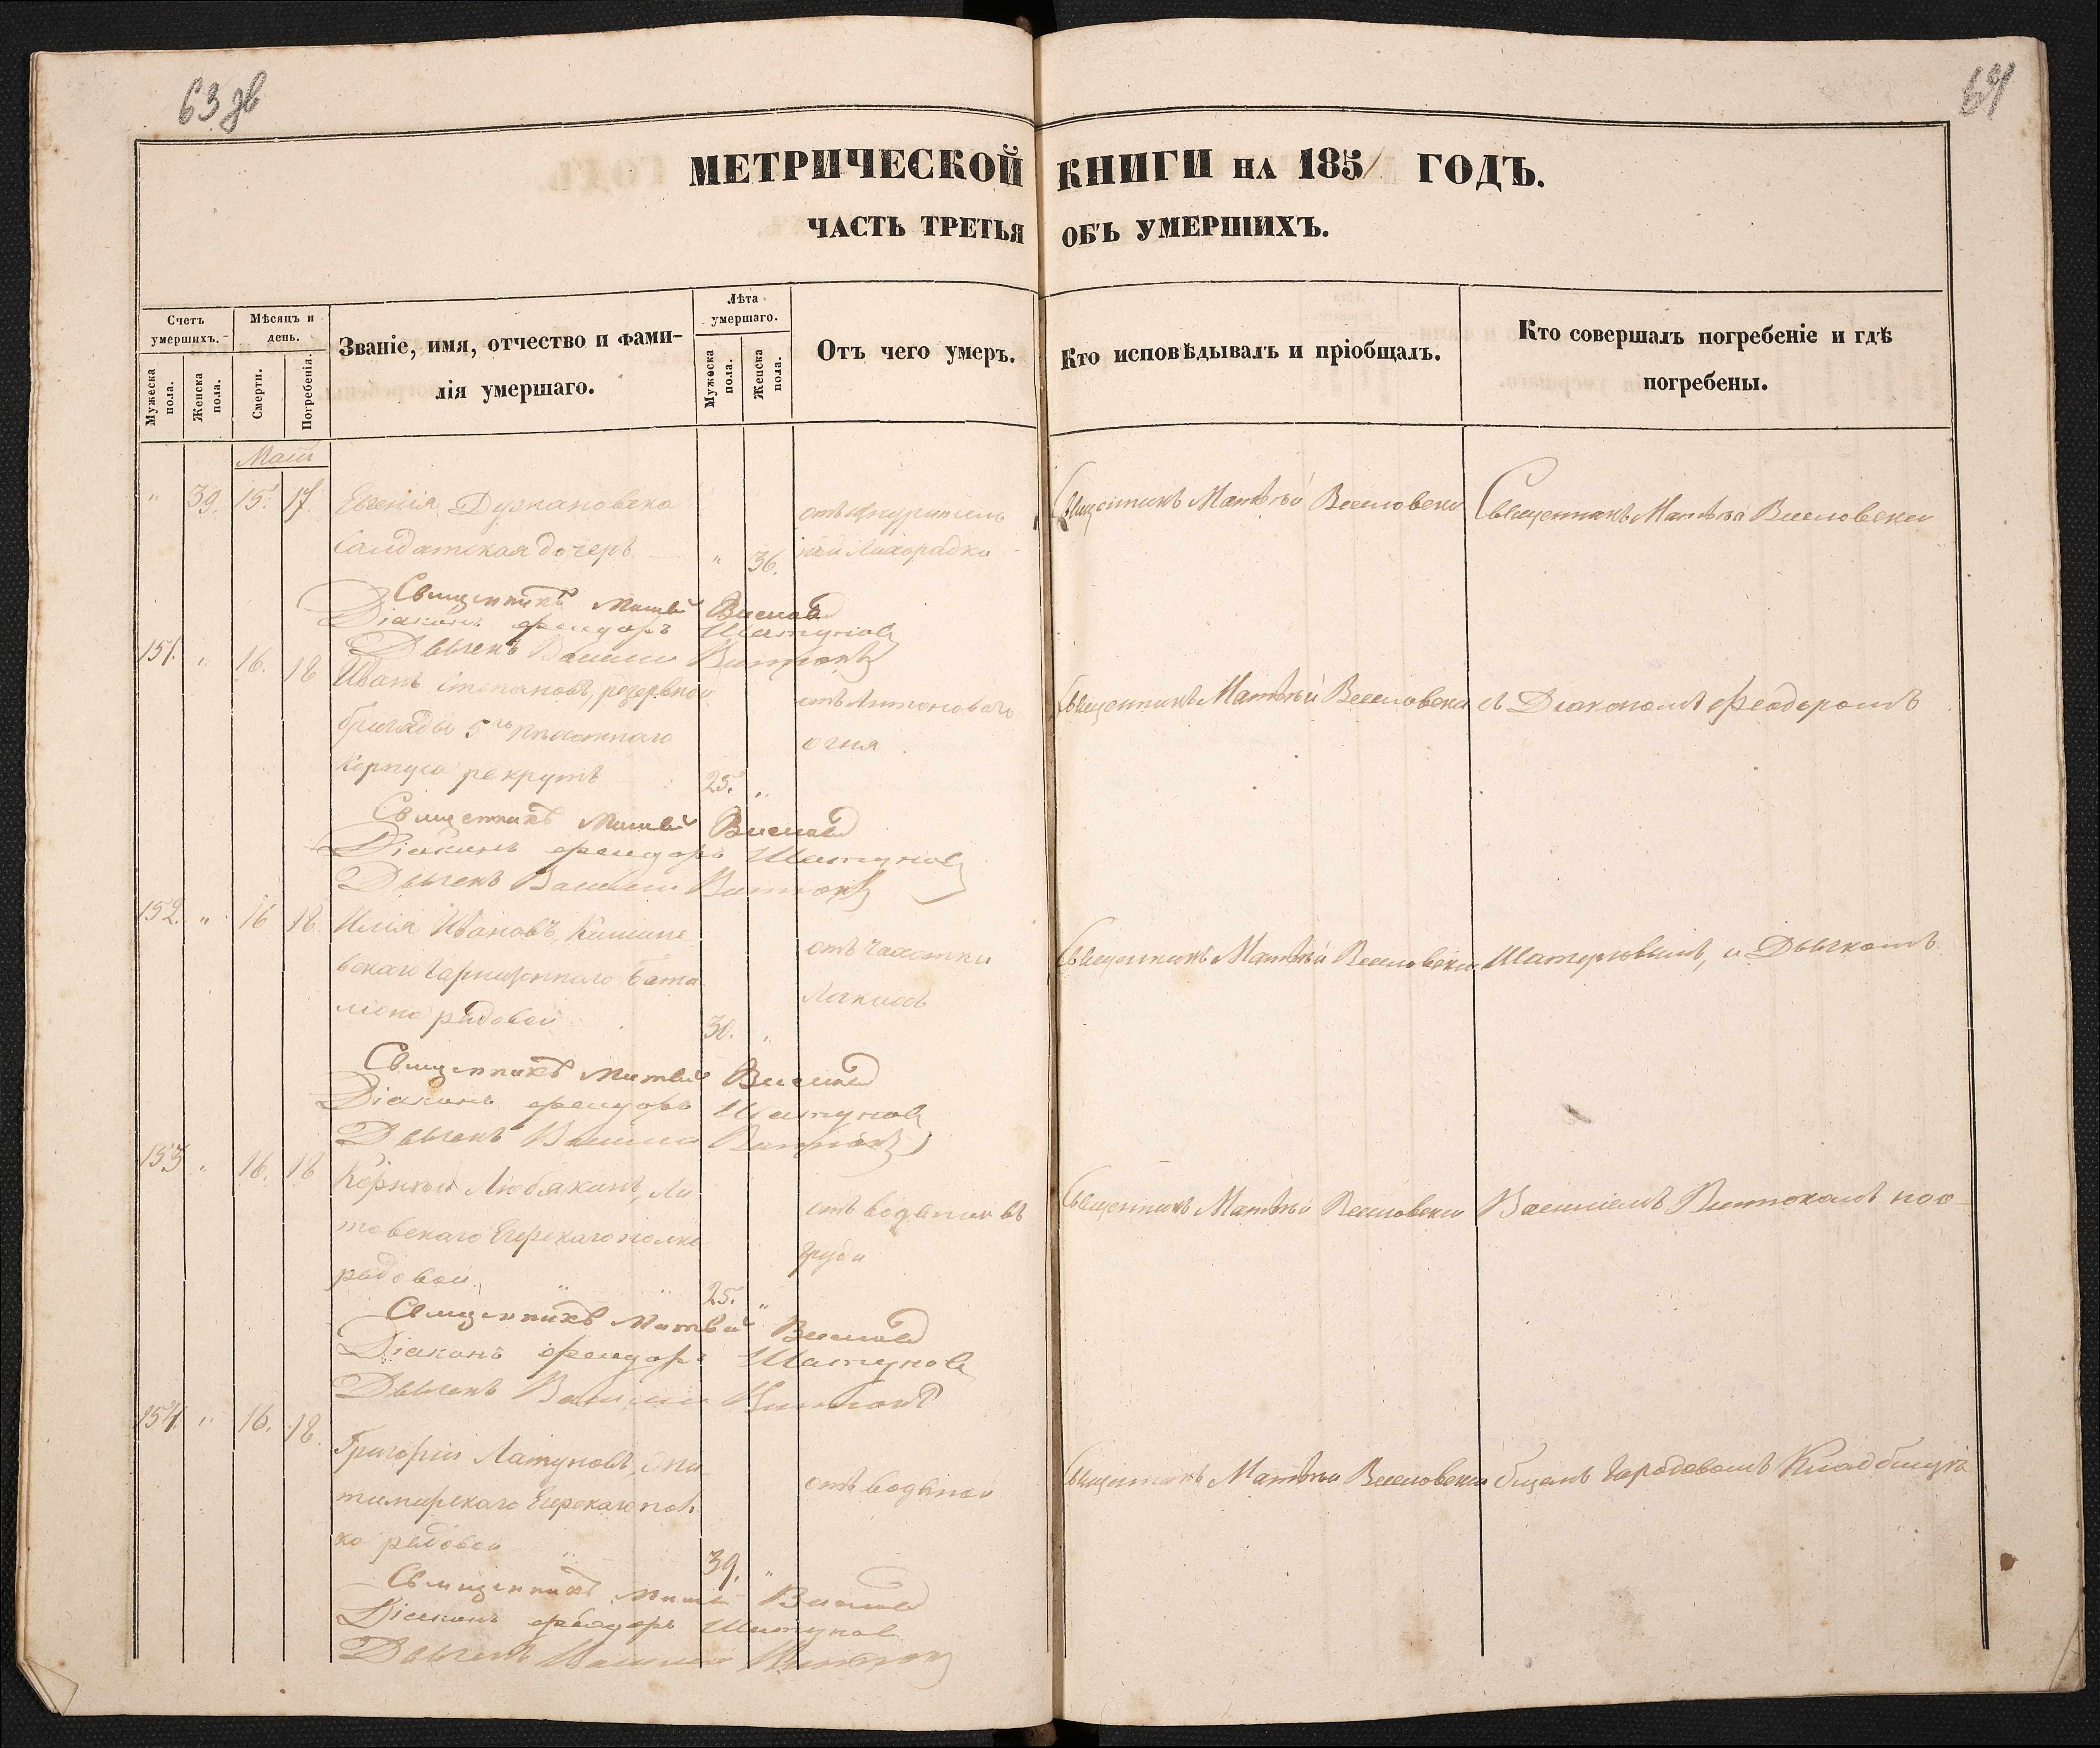 63 об
64
МЕТРИЧЕСКОЙ КНИГИ НА 1851 ГОДЪ.
ЧАСТЬ ТРЕТЬЯ ОБЪ УМЕРШИХЪ.
Счетъ умершихъ.
Мужеска пола.
Женска пола.
Мѣсяцъ и день.
Смерти.
Погребенія.
Званіе, имя, отчество и фами-
лія умершаго.
Лѣта умершаго.
Мужеска пола.
Женска пола.
Отъ чего умеръ.
Кто исповѣдывалъ и пріобщалъ.
Кто совершалъ погребеніе и гдѣ
погребены.
Маій
" 39. 15. 17. Евгенія
Солдатская дочерь " 36.
Лихорадки
Священникъ Матѳѣй Веселовски
Священникъ Матѳѣй Веселовски
Священникъ Матвей
Діаконъ Феодоръ Шатуновъ
Дьячекъ Василій
151. " 16. 18 Иванъ Степановъ, резервной
бригады 5го Пѣхотнаго
Корпуса рекрутъ 25. "
отъ Антоноваго
огня
Священникъ Матѳѣй Веселовски
съ Діакономъ Феодоромъ
Священникъ Матвей
Діаконъ Феодоръ Шатуновъ
Дьячекъ Василій
152. " 16 18. Илія Ивановъ, Кишине
вскаго Гарнизоннаго бата
ліона рядовой 30. "
отъ чахотки
легкихъ
Священникъ Матѳѣй Веселовски
Шатуновымъ, и Дьячкомъ
Священникъ Матвей
Діаконъ Феодоръ Шатуновъ
Дьячекъ Василій
153 " 16. 18 Корнѣй Любякинъ, Ли
товскаго Егерскаго полка
рядовой 25. "
отъ водяной въ
груди
Священникъ Матѳѣй Веселовски
Василіемъ Витокомъ на о
Священникъ Матвей
Діаконъ Феодоръ Шатуновъ
Дьячекъ Василій
154. " 16. 18. Григорій Латуновъ, Жи
томирскаго Егерскаго пол
ка рядовой 39. "
отъ водяной
Священникъ Матѳѣй Веселовски
бщемъ Городовомъ Кладбищѣ
Священникъ Матвей
Діаконъ Феодоръ Шатуновъ
Дьячекъ Василій